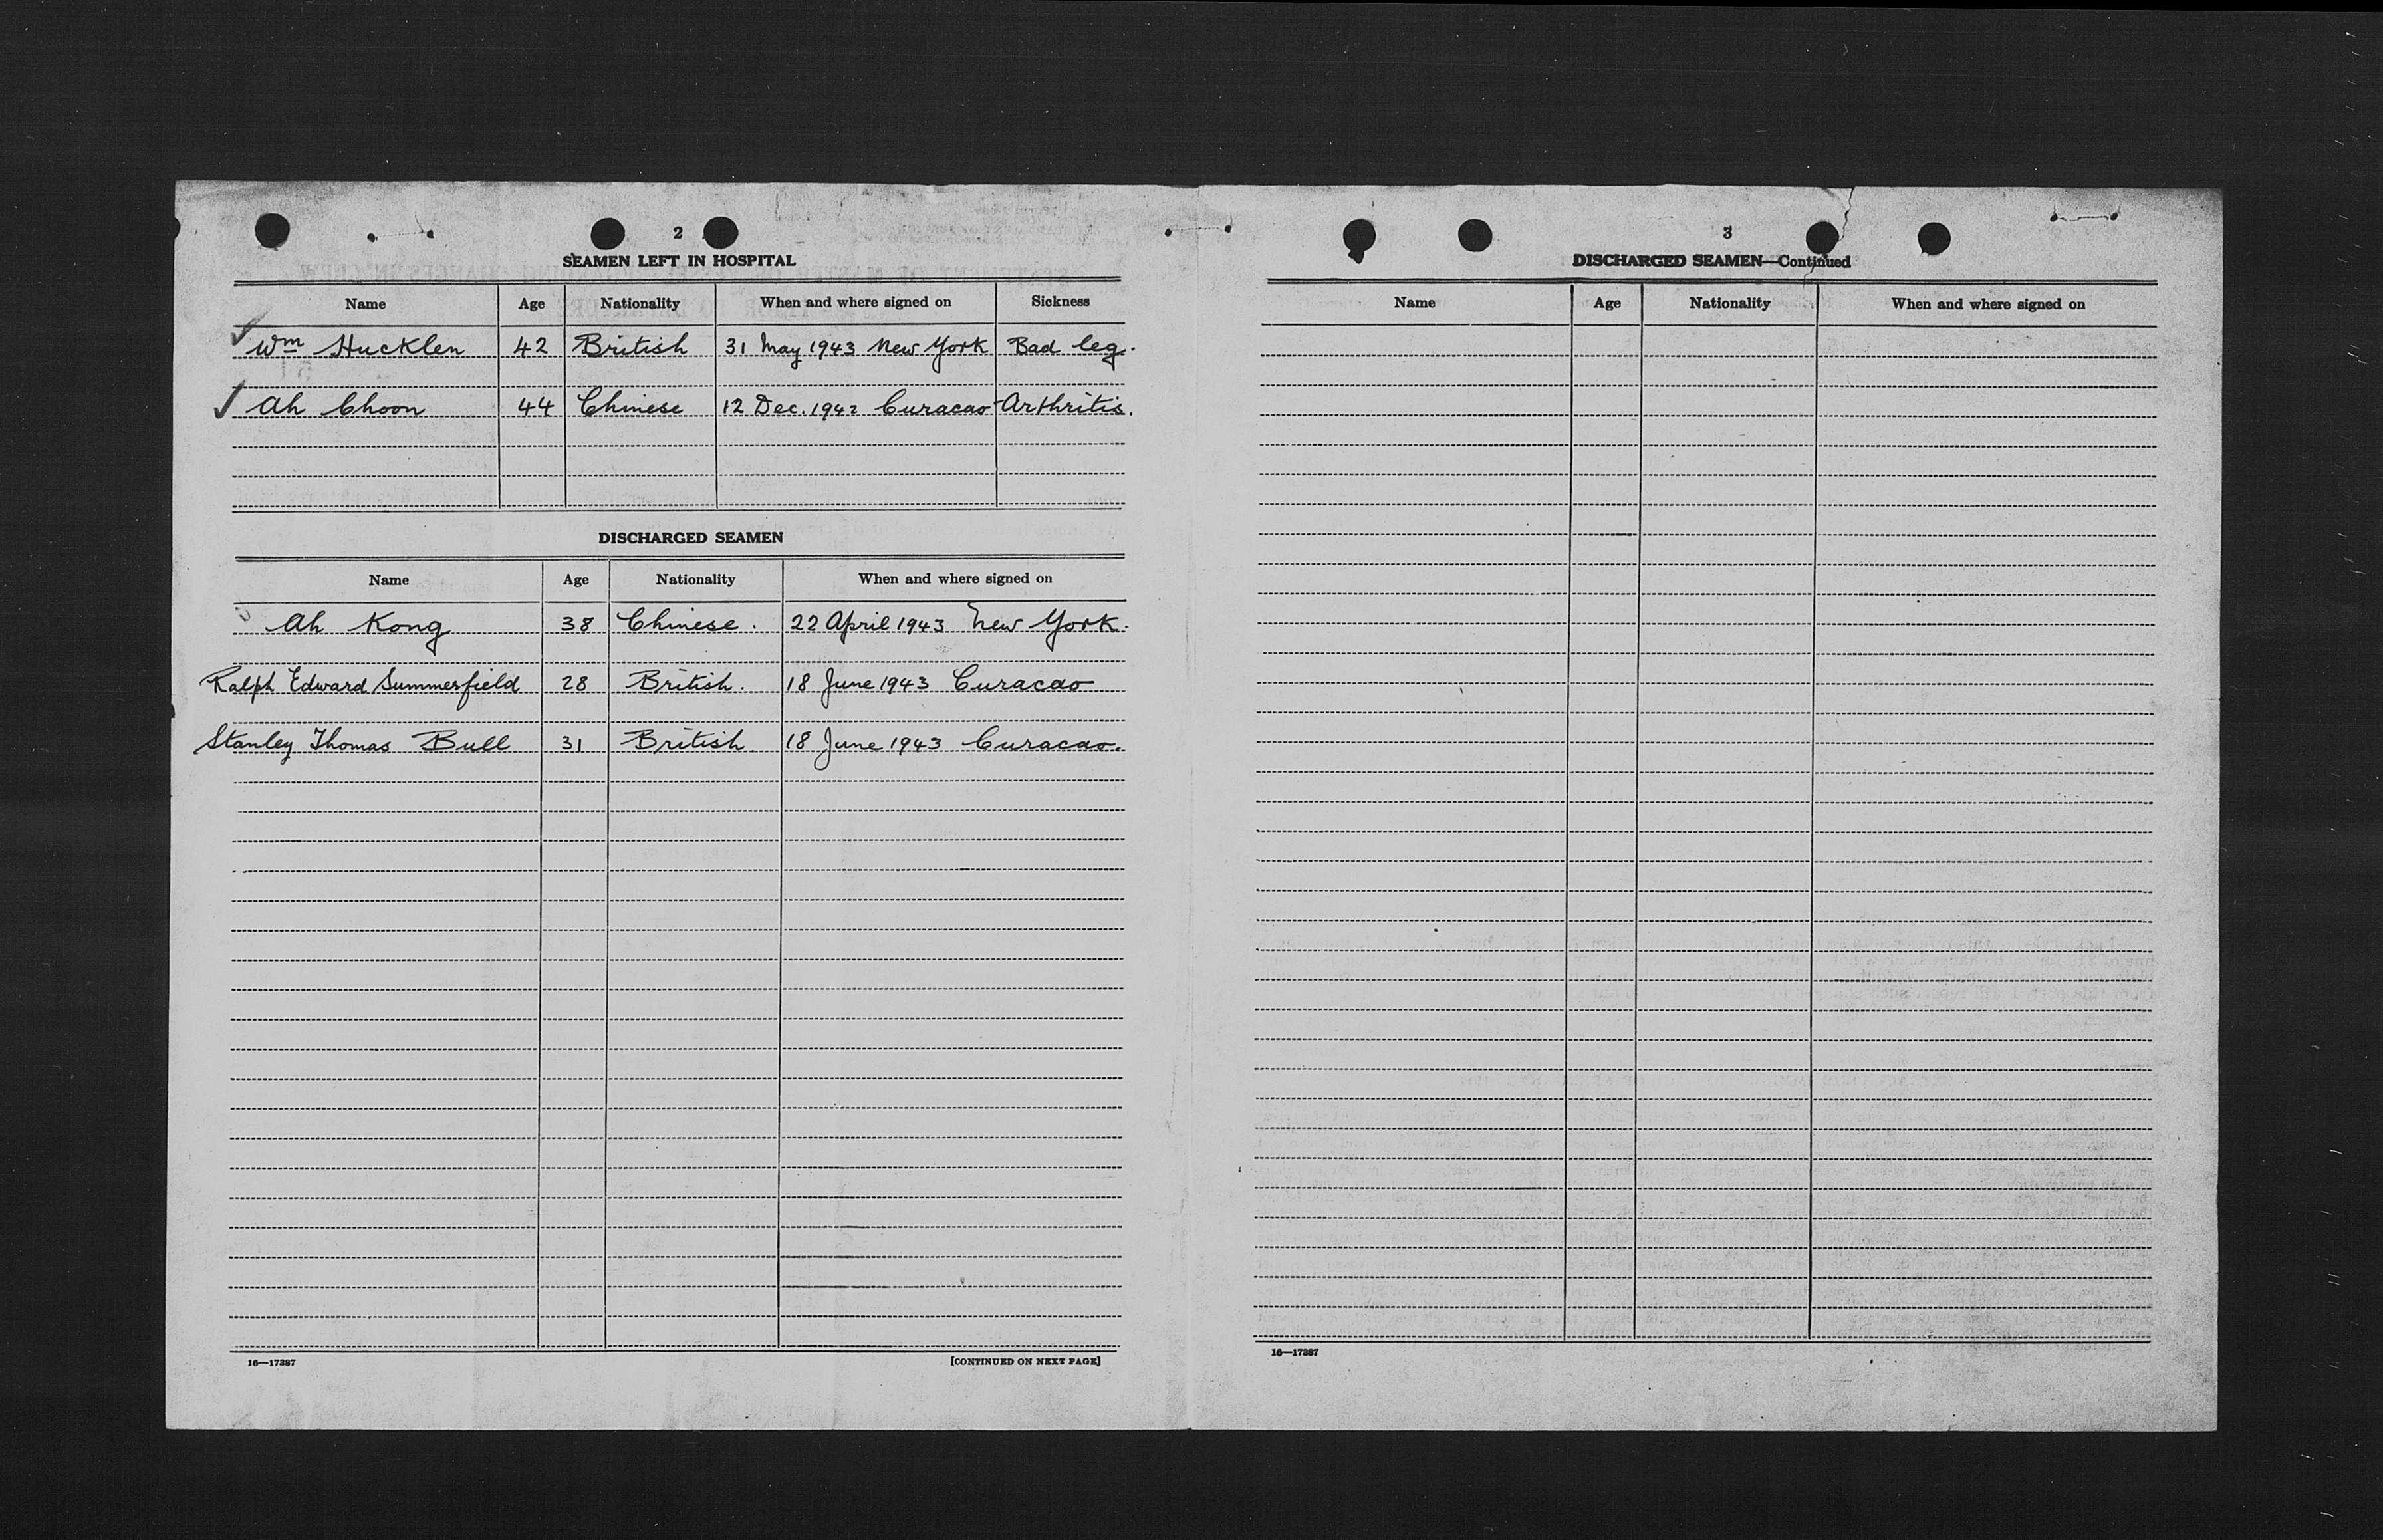 2
SEAMEN LEFT IN HOSPITAL
Name Age Nationality When and where signed on Sickness
Wm Hucklen 42 British 31 May 1943 New York Bad leg.
Ah Choon 44 Chinese 12 Dec. 1942 Curacao Arthritis.
DISCHARGED SEAMEN
Name Age Nationality When and where signed on
Ah Kong 38 Chinese. 22 April 1943 New York.
Ralph Edward Summerfield 28 British. 18 June 1943 Curacao
Stanley Thomas Bull 31 British 18 June 1943 Curacao.
16—17387 [CONTINUED ON NEXT PAGE]
3
DISCHARGED SEAMEN—Continued
Name Age Nationality When and where signed on
16—17387